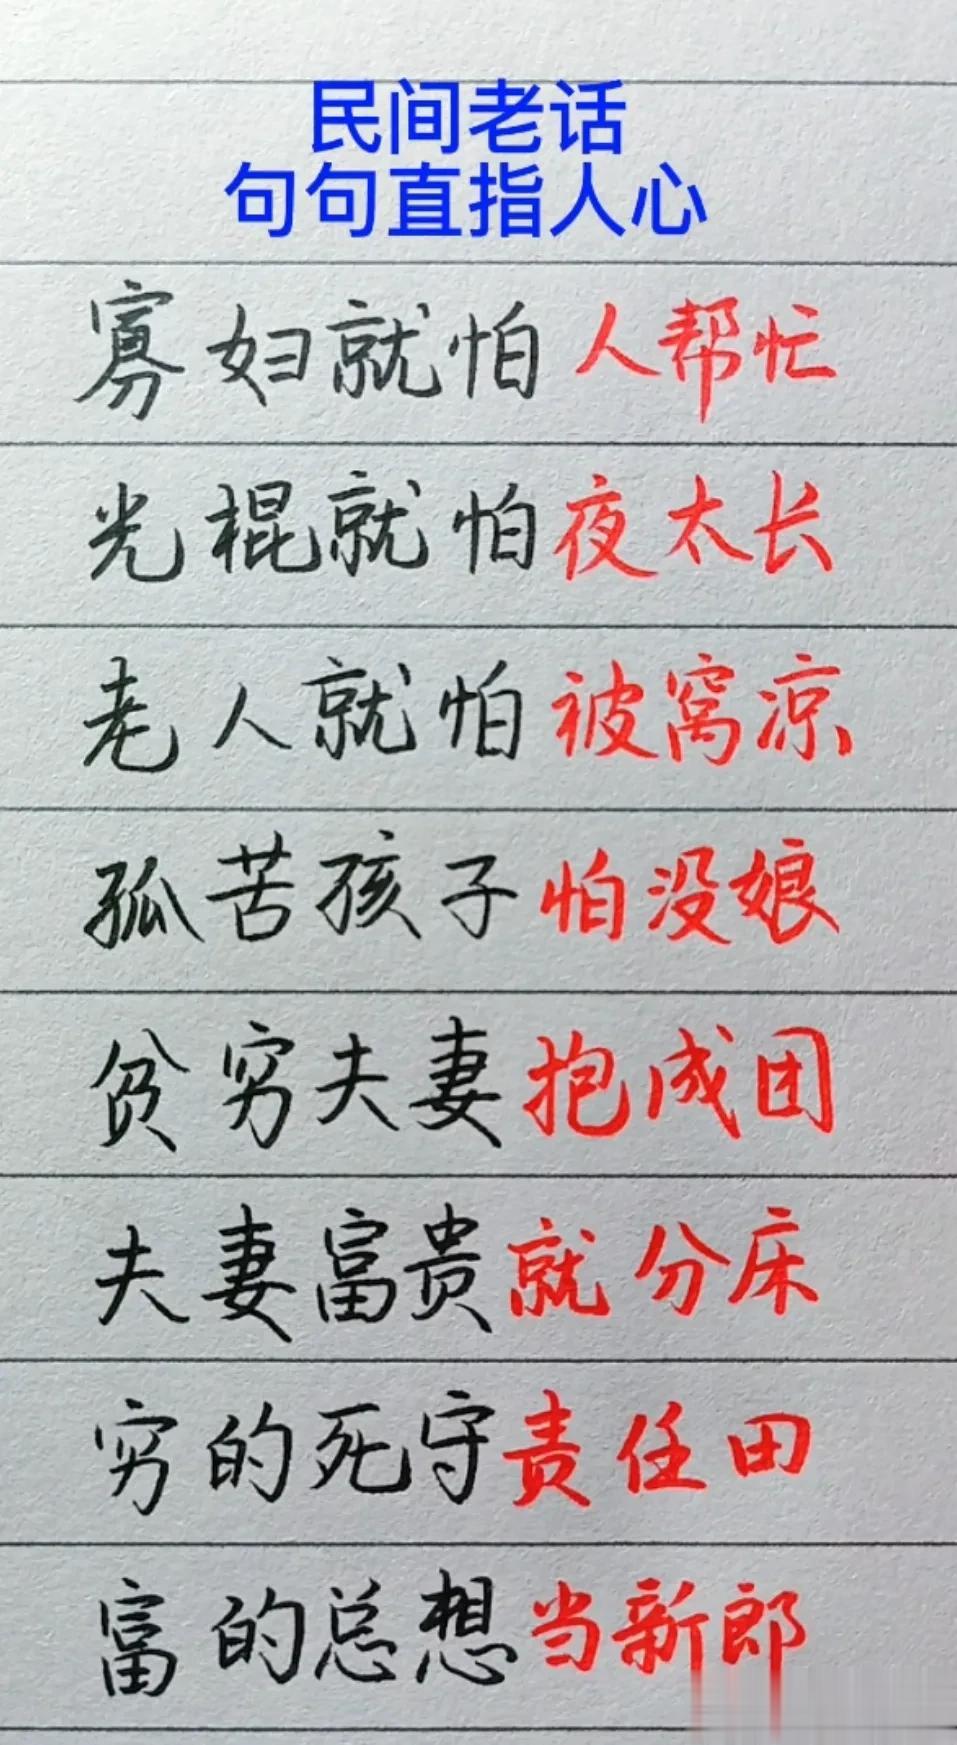 民间老话
句句直指人心
寡妇就怕人帮忙
光棍就怕夜太长
老人就怕被窝凉
孤苦孩子怕没娘
贫穷夫妻抱成团
夫妻富贵就分床
穷的死守责任田
富的总想当新郎